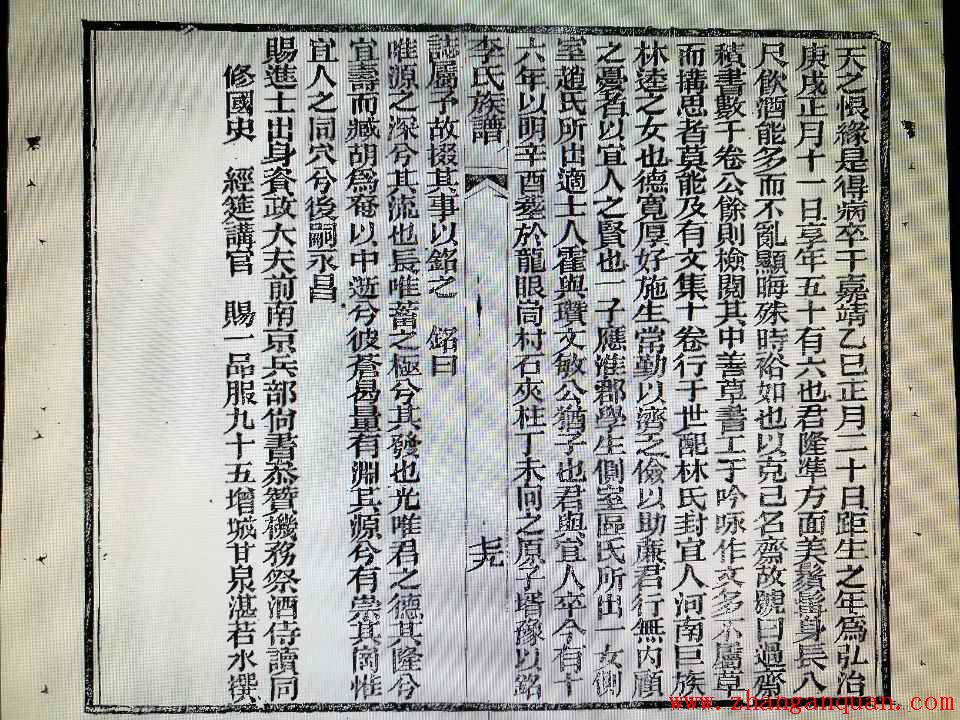 天之恨緣是得病卒于嘉靖乙巳正月二十日距生之年為弘治
庚戌正月十一日享年五十有六也君隆準方面美鬚髯身長八
尺飲酒能多而不亂顯晦殊時裕如也以克己名齋故號曰過齋
積書數千卷公餘則檢閱其中善草書工于吟咏作文多不屬草
而搆思者莫能及有文集十卷行于世配林氏封宜人河南巨族
林逵之女也德寬厚好施生常勤以濟之儉以助亷君行無內顧
之憂者以宜人之賢也一子應淮郡學生側室區氏所出一女側
室趙氏所出適士人霍與瓚文敏公猶子也君與宜人卒今有十
六年以明辛酉葬於龍眼崗村石夾柱丁未向之原子壻豫以銘
李氏族譜 七九
誌屬予故掇其事以銘之 銘曰
唯源之深兮其流也長唯蓄之極兮其發也光唯君之德其隆兮
宜壽而臧胡為奄以中逝兮彼蒼曷量有淵其源兮有崇其崗惟
宜人之同穴兮後嗣永昌
賜進士出身資政大夫前南京兵部尙書叅贊機務祭酒侍讀同
修國史 經筵講官 賜一品服九十五增城甘泉湛若水撰
www.zhanganquan.com